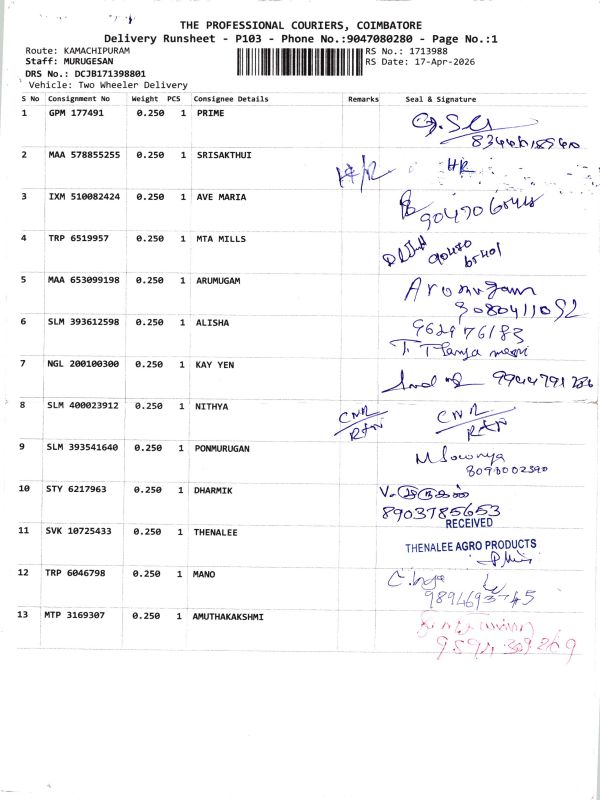 THE PROFESSIONAL COURIERS, COIMBATORE
Delivery Runsheet - P103 - Phone No.:9047080280 - Page No.:1
Route: KAMACHIPURAM RS No.: 1713988
Staff: MURUGESAN RS Date: 17-Apr-2026
DRS No.: DCJB171398801
Vehicle: Two Wheeler Delivery
S No Consignment No Weight PCS Consignee Details Remarks Seal & Signature
1 GPM 177491 0.250 1 PRIME
2 MAA 578855255 0.250 1 SRISAKTHUI
3 IXM 510082424 0.250 1 AVE MARIA
4 TRP 6519957 0.250 1 MTA MILLS
5 MAA 653099198 0.250 1 ARUMUGAM Arumugam
6 SLM 393612598 0.250 1 ALISHA
9629176183
7 NGL 200100300 0.250 1 KAY YEN
8 SLM 400023912 0.250 1 NITHYA CNR CNR
9 SLM 393541640 0.250 1 PONMURUGAN
M Sowmya
10 STY 6217963 0.250 1 DHARMIK
8903785653
RECEIVED
11 SVK 10725433 0.250 1 THENALEE
THENALEE AGRO PRODUCTS
12 TRP 6046798 0.250 1 MANO
13 MTP 3169307 0.250 1 AMUTHAKAKSHMI